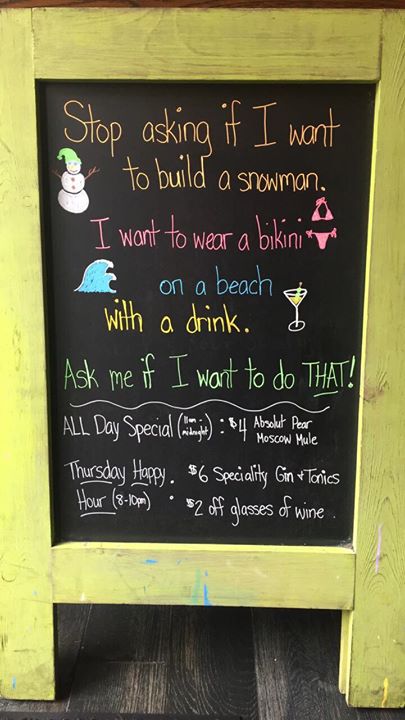 Stop asking if I want
to build a snowman.
I want to wear a bikini
on a beach
with a drink.
Ask me if I want to do THAT!
ALL Day Special (11am - midnight) : $4 Absolut Pear
Moscow Mule
Thursday Happy : $6 Speciality Gin + Tonics
Hour (8-10pm) $2 off glasses of wine.